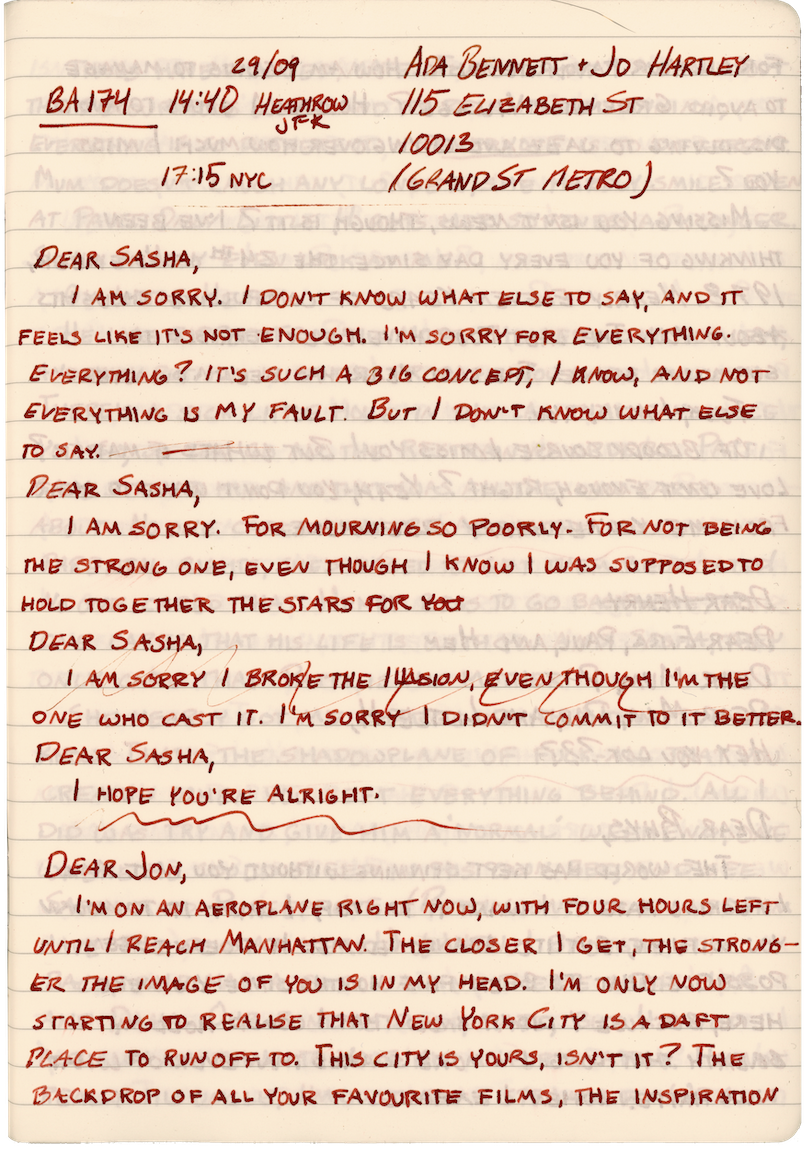 29/09
BA174 14:40 HEATHROW
JFK
17:15 NYC
ADA BENNETT + JO HARTLEY
115 ELIZABETH ST
10013
(GRAND ST METRO)
DEAR SASHA,
I AM SORRY. I DON'T KNOW WHAT ELSE TO SAY, AND IT
FEELS LIKE IT'S NOT ENOUGH. I'M SORRY FOR EVERYTHING.
EVERYTHING? IT'S SUCH A BIG CONCEPT, I KNOW, AND NOT
EVERYTHING IS MY FAULT. BUT I DON'T KNOW WHAT ELSE
TO SAY.
DEAR SASHA,
I AM SORRY. FOR MOURNING SO POORLY. FOR NOT BEING
THE STRONG ONE, EVEN THOUGH I KNOW I WAS SUPPOSED TO
HOLD TOGETHER THE STARS FOR YOU
DEAR SASHA,
I AM SORRY I BROKE THE ILLUSION, EVEN THOUGH I'M THE
ONE WHO CAST IT. I'M SORRY I DIDN'T COMMIT TO IT BETTER.
DEAR SASHA,
I HOPE YOU'RE ALRIGHT.
DEAR JON,
I'M ON AN AEROPLANE RIGHT NOW, WITH FOUR HOURS LEFT
UNTIL I REACH MANHATTAN. THE CLOSER I GET, THE STRONG-
ER THE IMAGE OF YOU IS IN MY HEAD. I'M ONLY NOW
STARTING TO REALISE THAT NEW YORK CITY IS A DAFT
PLACE TO RUN OFF TO. THIS CITY IS YOURS, ISN'T IT? THE
BACKDROP OF ALL YOUR FAVOURITE FILMS, THE INSPIRATION